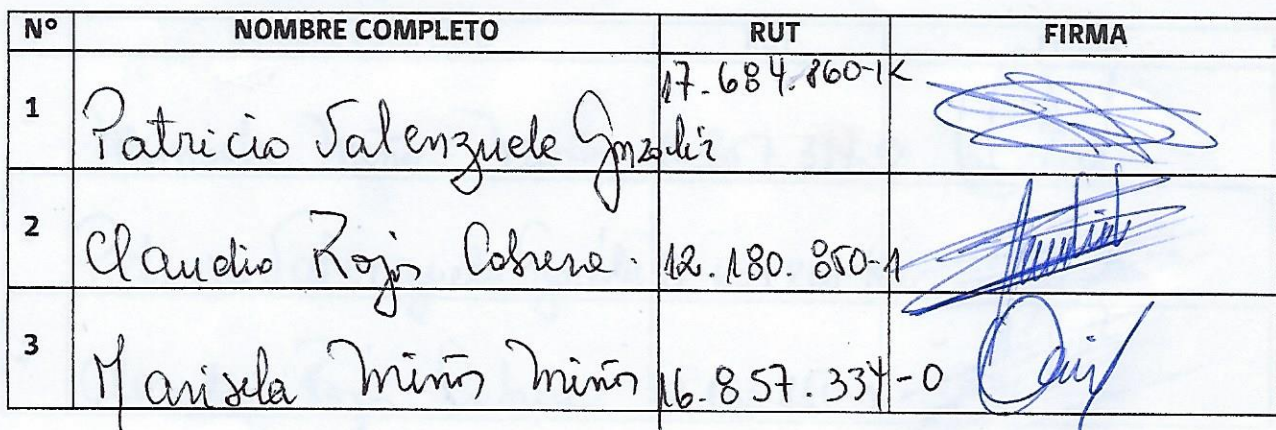 Nº NOMBRE COMPLETO RUT FIRMA
1 Patricio Valenzuela González 17.684.860-K
2 Claudio Rojas Cabrera. 12.180.850-1
3 Marisela Miños Miños 16.857.334-0